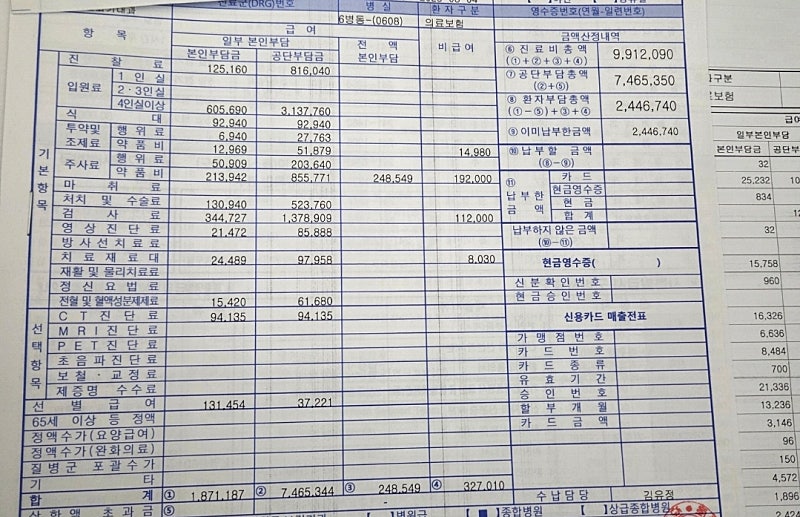 진료군(DRG)번호 병 실 환자구분 영수증번호(연월-일련번호)
6병동-(0608) 의료보험
항 목 급 여 비급여 금액산정내역
일부 본인부담 전 액 본인부담
본인부담금 공단부담금
⑥ 진 료 비 총 액 (①+②+③+④) 9,912,090
⑦ 공단부담총액 (②+⑤) 7,465,350
⑧ 환자부담총액 (①-⑤)+③+④ 2,446,740
⑨ 이미납부한금액 2,446,740
⑩ 납 부 할 금 액 (⑧-⑨)
⑪ 납 부 한 금 액
카 드
현금영수증
현 금
합 계
납부하지 않은 금액 (⑩-⑪)
현금영수증( )
신 분 확 인 번 호
현 금 승 인 번 호
신용카드 매출전표
가 맹 점 번 호
카 드 번 호
카 드 종 류
유 효 기 간
승 인 번 호
할 부 개 월
카 드 금 액
수 납 담 당 김유정
기본항목
진 찰 료 125,160 816,040
입원료 1 인 실
2 · 3인실
4인실이상 605,690 3,137,760
식 대 92,940 92,940
투약및 조제료 행 위 료 6,940 27,763
약 품 비 12,969 51,879 14,980
주사료 행 위 료 50,909 203,640
약 품 비 213,942 855,771 248,549 192,000
마 취 료
처치 및 수술료 130,940 523,760
검 사 료 344,727 1,378,909 112,000
영 상 진 단 료 21,472 85,888
방 사 선 치 료 료
치 료 재 료 대 24,489 97,958 8,030
재활 및 물리치료료
정 신 요 법 료
전혈 및 혈액성분제제료 15,420 61,680
선택항목
C T 진 단 료 94,135 94,135
M R I 진 단 료
P E T 진 단 료
초 음 파 진 단 료
보 철 · 교 정 료
제 증 명 수 수 료
선 별 급 여 131,454 37,221
65세 이상 등 정액
정액수가(요양급여)
정액수가(완화의료)
질 병 군 포 괄 수 가
기 타
합 계 ① 1,871,187 ② 7,465,344 ③ 248,549 ④ 327,010
상 한 액 초 과 금 ⑤ -
[ ]병원급 [■]종합병원 [ ]상급종합병원
자구분
료보험
급여
일부본인부담
본인부담금 공단부
32
25,232
834
32
15,758
960
16,326
6,636
8,484
700
21,336
13,236
3,146
96
150
4,572
1,896
2,424